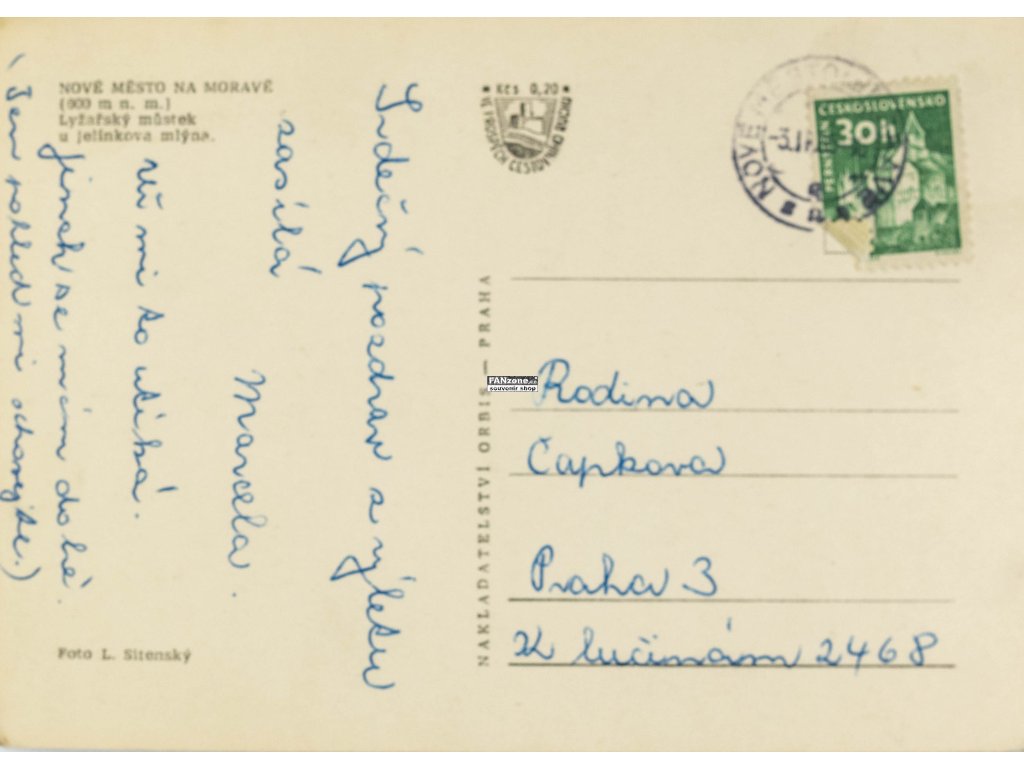 NOVÉ MĚSTO NA MORAVĚ
(600 m n. m.)
Lyžařský můstek
u Jelínkova mlýna.
Srdečný pozdrav z výletu
zasílá
Marcela.
mi to utíká.
Jinak se mám dobře.
(Jen pohled mi schovejte.)
Foto L. Sitenský
Kčs 0,20
CESTOVNÍHO RUCHU
NAKLADATELSTVÍ ORBIS — PRAHA
FANzone.cz
souvenir shop
NOVÉ
-3.
ČESKOSLOVENSKO
30 h
PERNŠTEJN
Rodina
Čapkova
Praha 3
K lučinám 2468